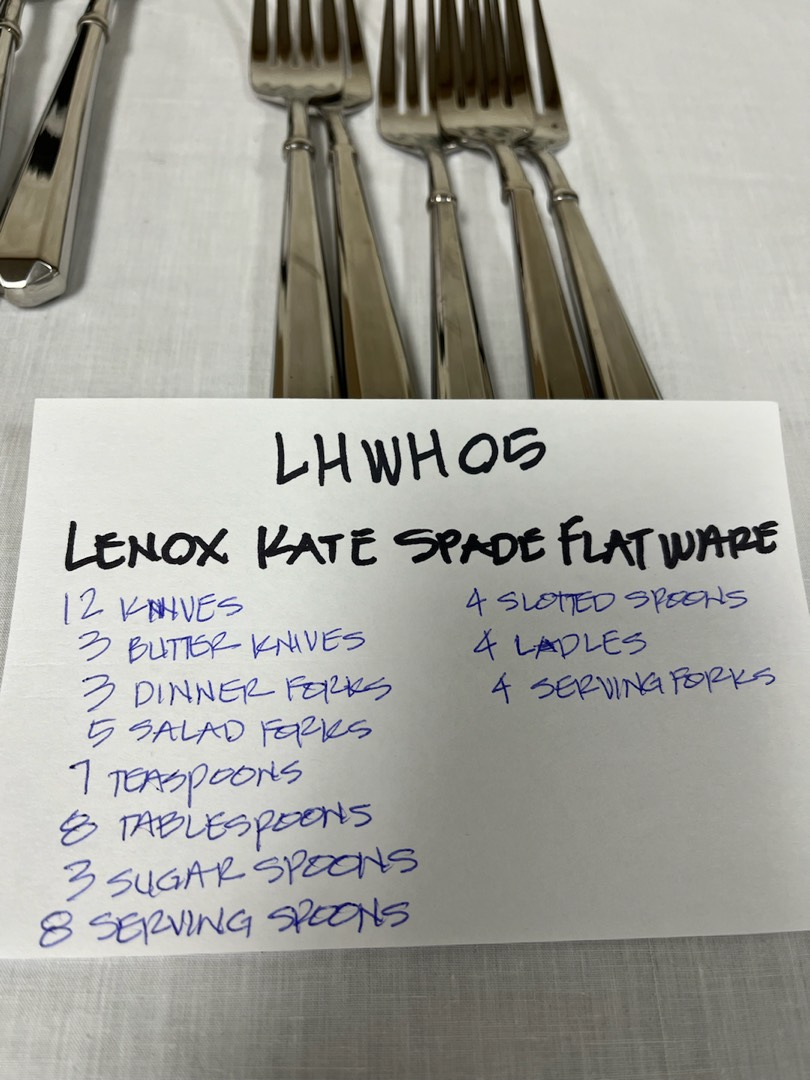 LHWH05
LENOX KATE SPADE FLATWARE
12 KNIVES
3 BUTTER KNIVES
3 DINNER FORKS
5 SALAD FORKS
7 TEASPOONS
8 TABLESPOONS
3 SUGAR SPOONS
8 SERVING SPOONS
4 SLOTTED SPOONS
4 LADLES
4 SERVING FORKS